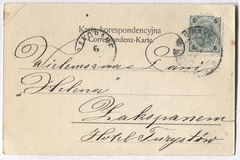 Karta korespondencyjna
Correspondenz-Karte
6
Wielemożna Pani
"Helena"
Zakopanem
Hotel Turystów